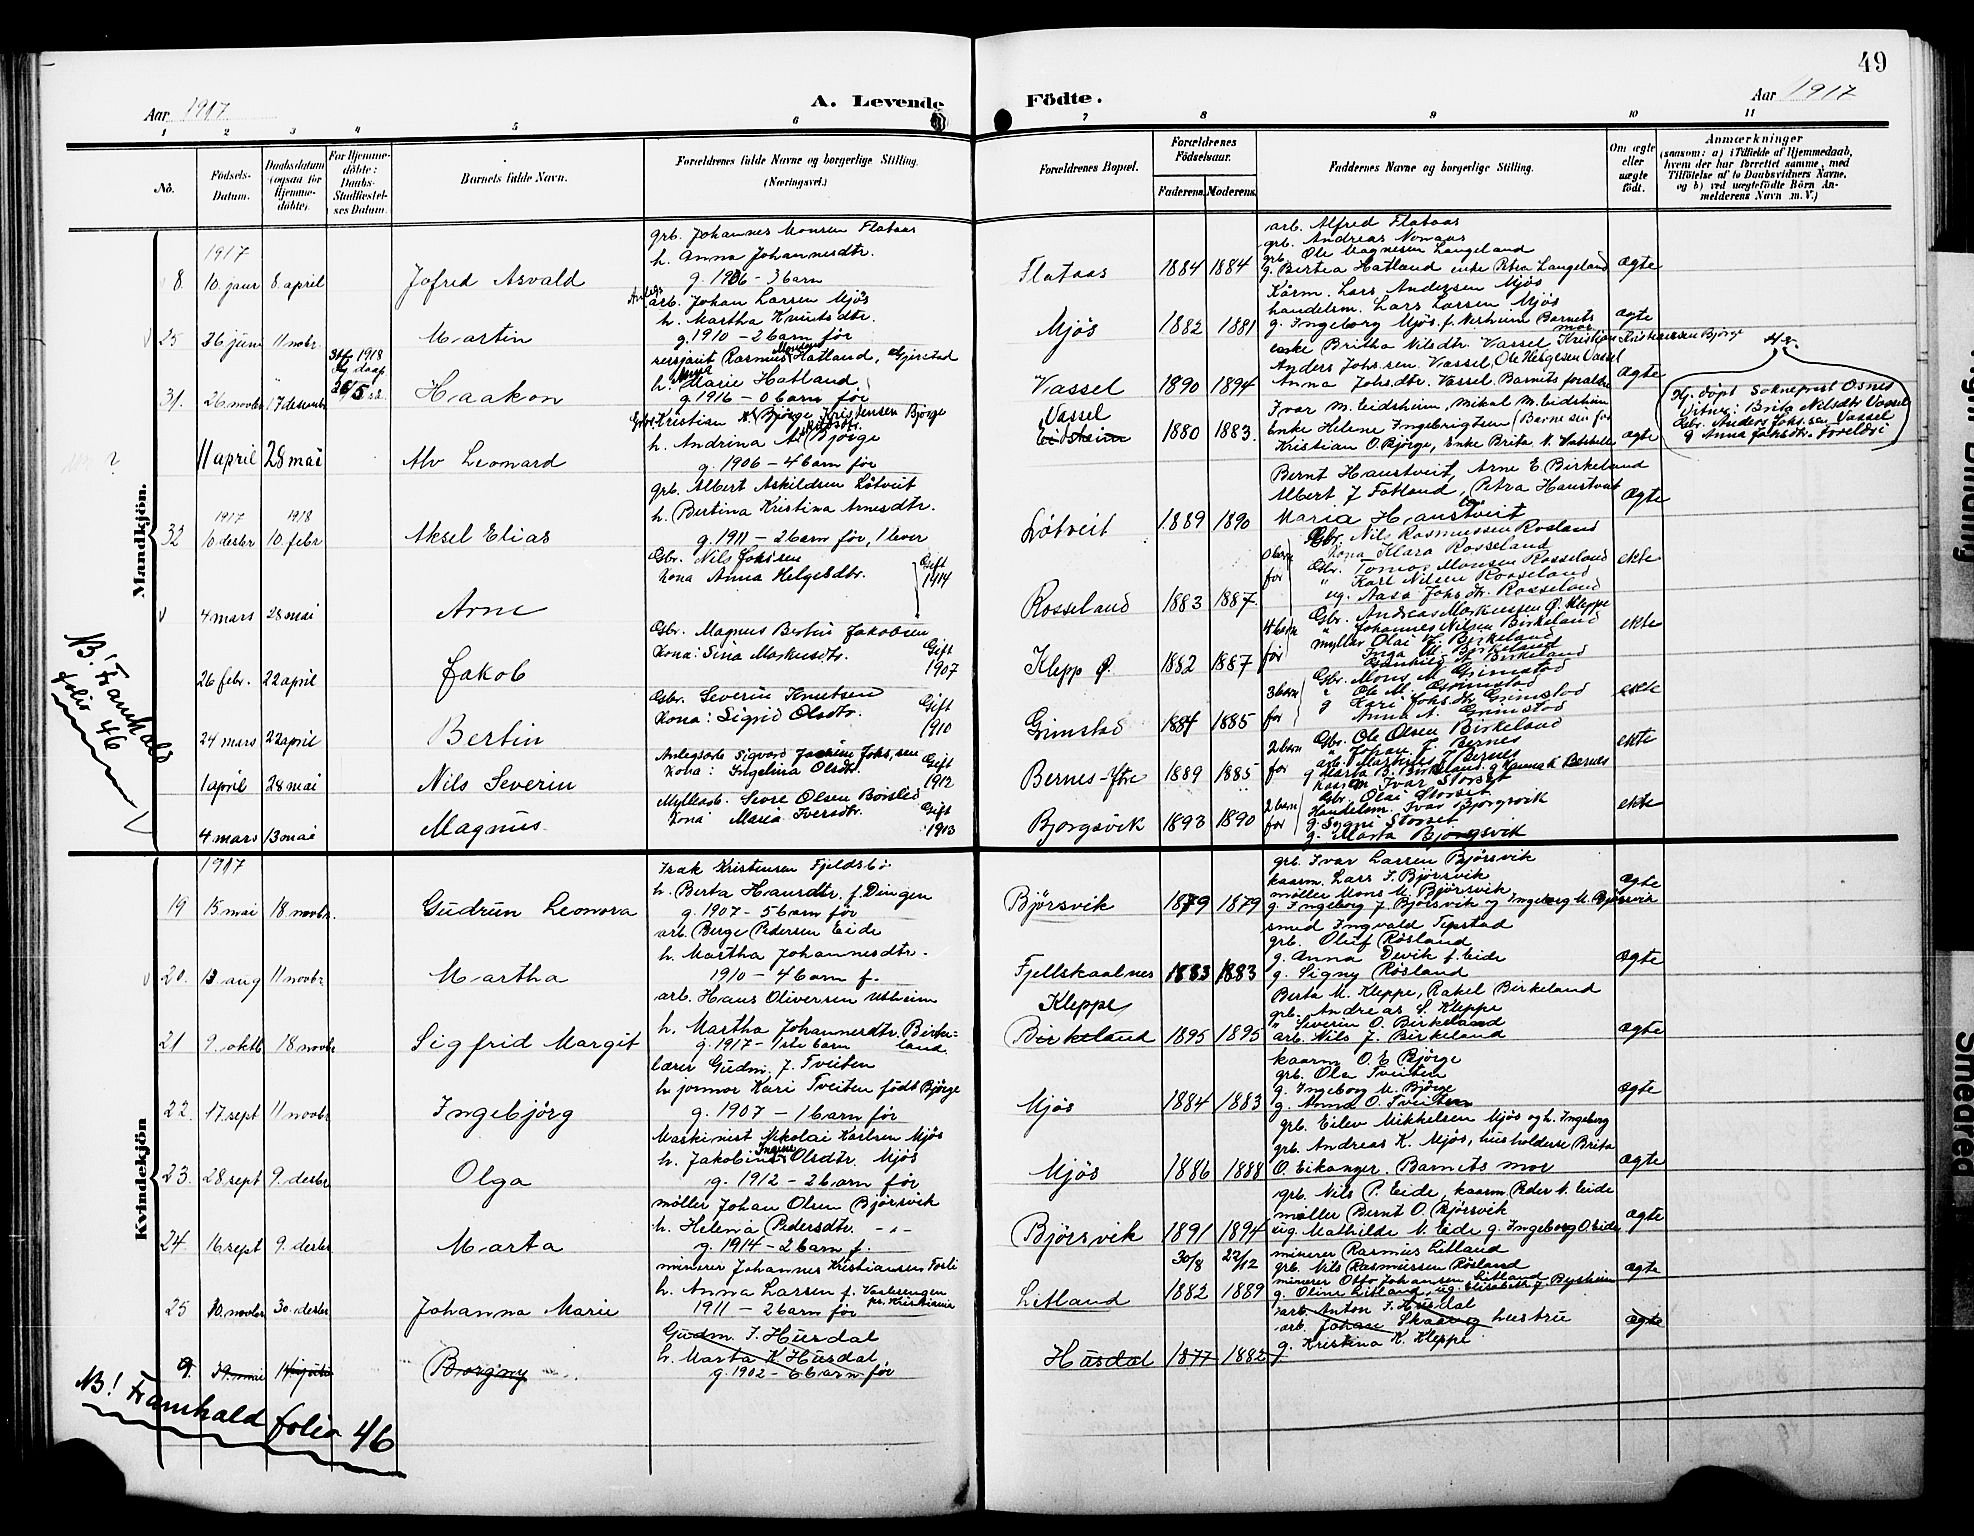 49
Aar 1917
A. Levende Födte.
Aar 1917
1 2 3 4 5 6 7 8 9 10 11
No.
Födsels-Datum.
Daabsdatum (ogsaa for Hjemmedöbte).
For Hjemmedöbte: Daabs-Stadfæstelses Datum.
Barnets fulde Navn.
Forældrenes fulde Navne og borgerlige Stilling. (Næringsvei.)
Forældrenes Bopæl.
Forældrenes Födselsaar.
Faderens. Moderens.
Faddernes Navne og borgerlige Stilling.
Om ægte eller uægte født.
Anmærkninger
(saasom: a) i Tilfælde af Hjemmedaab, hvem der har forrettet samme, med Tilföielse af to Daabsvidners Navne, og b) ved uægtefödte Börn Anmelderens Navn m. V.)
Mandkjön.
1917
grb. Johannes Monsen Flataas
h. Anna Johannesdtr.
8. 10. januar 8. april Jofred Asvald g. 1906 - 3 barn
Flataas 1884 1884
arb. Alfred Flataas
grb. Andreas
grb. Ole Magnesen Langeland
g. Bertea Hatland enke Petra Langeland ægte
Anlegs arb. Johan Larsen Mjøs
h. Martha Knutsdtr.
25 26 juni 11 nobr. Martin g. 1910 - 2 barn før
Mjøs 1882 1881
Kårm. Lars Andersen Mjøs
handelsm. Lars Larsen Mjøs
g. Ingeborg Mjøs f. Barnets mor ægte
31/3 1918
daap
26/5
Rasmus Monsen Hatland, Gjerstad
h. Anna Marie Hatland
31. 26 novbr 17 desember Haakon g. 1916 - 0 barn før
Vassel 1890 1894
enke Britha Nilsdtr. Vassel, Kristian Kristiansen Bjørge
Anders Johs.sen Vassel, Ole Helgesen Vassel
Anna Johs.dtr. Vassel. Barnets foraldre ægte
Hj. døpt Sokneprest Osnes
Vitner: Brita Nilsdtr Vassel
Gbr. Anders Johs.sen Vassel
g Anna Johsdtr. Foreldri
Gbr. Kristian Bjørge Kristensen Bjørge
h. Andrina Bjørge
11 april 28 mai Alv Leonard g. 1906 - 4 barn før
Vassel
Eidsheim 1880 1883.
Ivar M. Eidsheim, Mikal M. Eidsheim
Enke Helene Ingebrigtsen
Kristian O. Bjørge, Enke Brita N. ægte
grb. Albert Askildsen Løtveit
h. Bertina Kristina Arnesdtr.
1917 1918
32 10. desbr 10. febr Aksel Elias g. 1911 - 2 barn før, 1 lever
Løtveit 1889 1890
Bernt Haustveit, Arne E. Birkeland
Albert J Fatland, Petra Haustveit
Maria Haustveit ægte
Gbr. Nils Johs.sen
Kona Anna Helgesdtr. Gift 1914
4 mars 28 mai Arne
Rosseland 1883 1887.
0 barn før
Gbr. Nils Rasmussen Rosland
Kona Klara Rosseland
Gbr. Tomas Monsen Rosseland
" Karl Nilsen Rosseland
ug. Aasa Johs.dtr. Rosseland ekte
Gbr. Magnus Bertin Jakobsen
Kona: Sina Markusdtr. Gift 1907
26 febr. 22 april Jakob
Klepp Ø. 1882 1887
4 barn før
Gbr. Andreas Markussen Ø. Kleppe
" Johannes Nilsen Birkeland
myller Olai H. Birkeland
Inga M. Birkeland
Birkeland ekte
Gbr. Severin Knutsen
Kona: Sigrid Olsdtr. Gift 1910
24 mars 22 april Bertin
Grimstad 1884 1885
3 barn før
Gbr. Mons M. Grimstad
" Ole M. Grimstad
g Kari Johs.dtr Grimstad
Anna A. Grimstad ekte
Anlegsarb Sigvard Joakim Johs.sen
Kona: Ingelina Olsdtr. Gift 1912
1 april 28 mai Nils Severin
Bernes-Ytre 1889 1885
2 barn før
Gbr. Ole Olsen Birkeland
" Johan J. Bernes
arb. Markus J Bernes
g Marta B. Birkeland. g Hanna K Bernes ekte
Myllearb. Sevre Olsen
Kona Maria Iversdtr. Gift 1913
4 mars 13 mai Magnus.
Bjorgsvik 1893 1890
2 barn før
Kaarm Ivar Storset
Gbr. Olai Storset
Handelsm. Ivar Bjorgsvik
g. Storset
g. Marta Bjorgsvik ekte
NB! Framhald
folio 46
Kvindekjön
1917
Isak Kristensen Fjeldsbø
h. Berta Hansdtr. f. Dingen
19 15 mai 18 novbr. Gudrun Leonora g. 1907 - 5 barn før
Bjørsvik 1879 1879
grb. Ivar Larsen Bjørsvik
kaarm. Lars I. Bjørsvik
møller Mons M. Bjørsvik
g. Ingeborg J Bjørsvik og Ingeborg M. Bjørsvik ægte
arb. Berge Pedersen Eide
h. Martha Johannesdtr.
20. 13 aug 11 novbr Martha 1910 - 4 barn f.
Fjellskaalnes 1883 1883
smed Ingvald Tepstad
grb. Oluf Røsland
g. Anna Devik f. Eide
g. Signy Røsland ægte
arb. Hans Oliversen
h. Martha Johannesdtr. Birkeland
21 9. oktb 18 novbr Sigfrid Margit g. 1917 - 1ste barn
Kleppe
Birkeland 1895 1895
Berta M. Kleppe, Rakel Birkeland
grb. Andreas S. Kleppe
" Severin O. Birkeland
arb. Nils J. Birkeland ægte
lærer Gudm. J. Tveiten
h. jormor Kari Tveiten født Bjørge
22. 17. sept 11 novbr Ingebjørg g. 1907 - 1 barn før
Mjøs 1884 1883
kaarm O. E Bjørge
grb. Ola Tveiten
g. Ingeborg M. Bjørge
g. Anna O. Tveiten ægte
Maskinist Nikolai Karlsen Mjøs
h. Jakobine Olsdtr. Mjøs
23. 28 sept 9. desbr Olga g. 1912 - 2 barn før
Mjøs 1886 1888
grb. Eilev Mikkelsen Mjøs og h. Ingeborg
grb. Andreas K. Mjøs, husholderse Brita
O. Eikanger. Barnets mor ægte
møller Johan Olsen Bjørsvik
h. Helena Pedersdtr. - " -
24. 16 sept 9. desbr Marta g. 1914 - 2 barn f.
Bjørsvik 1891 1894
grb. Nils P. Eide, kaarm Peder N. Eide
møller Bernt O. Bjørsvik
ug. Mathilde N. Eide g. Ingeborg O. Eide ægte
minerer Johannes Kristiansen Fosli
h. Anna Larsen f. Vaalerengen pr. Kristiania
25 10. novbr 30. desbr Johanna Marie 1911 - 2 barn før
Litland 30/8 1882 22/12 1889
minerer Rasmus Litland
grb. Nils Rasmussen Røsland
minerer Otto Johansen Litland
g. Oline Litland, ug. Elisabeth J. Bysheim ægte
Gudm. I. Husdal
h. Marta K Husdal
9. 29. mai Borgny g. 1902 - 6 barn før
Husdal 1877 1882
arb. Anton I. Husdal
arb. Johan Skaar og hustru
g. Kristina K. Kleppe ægte
NB! Framhald folio 46